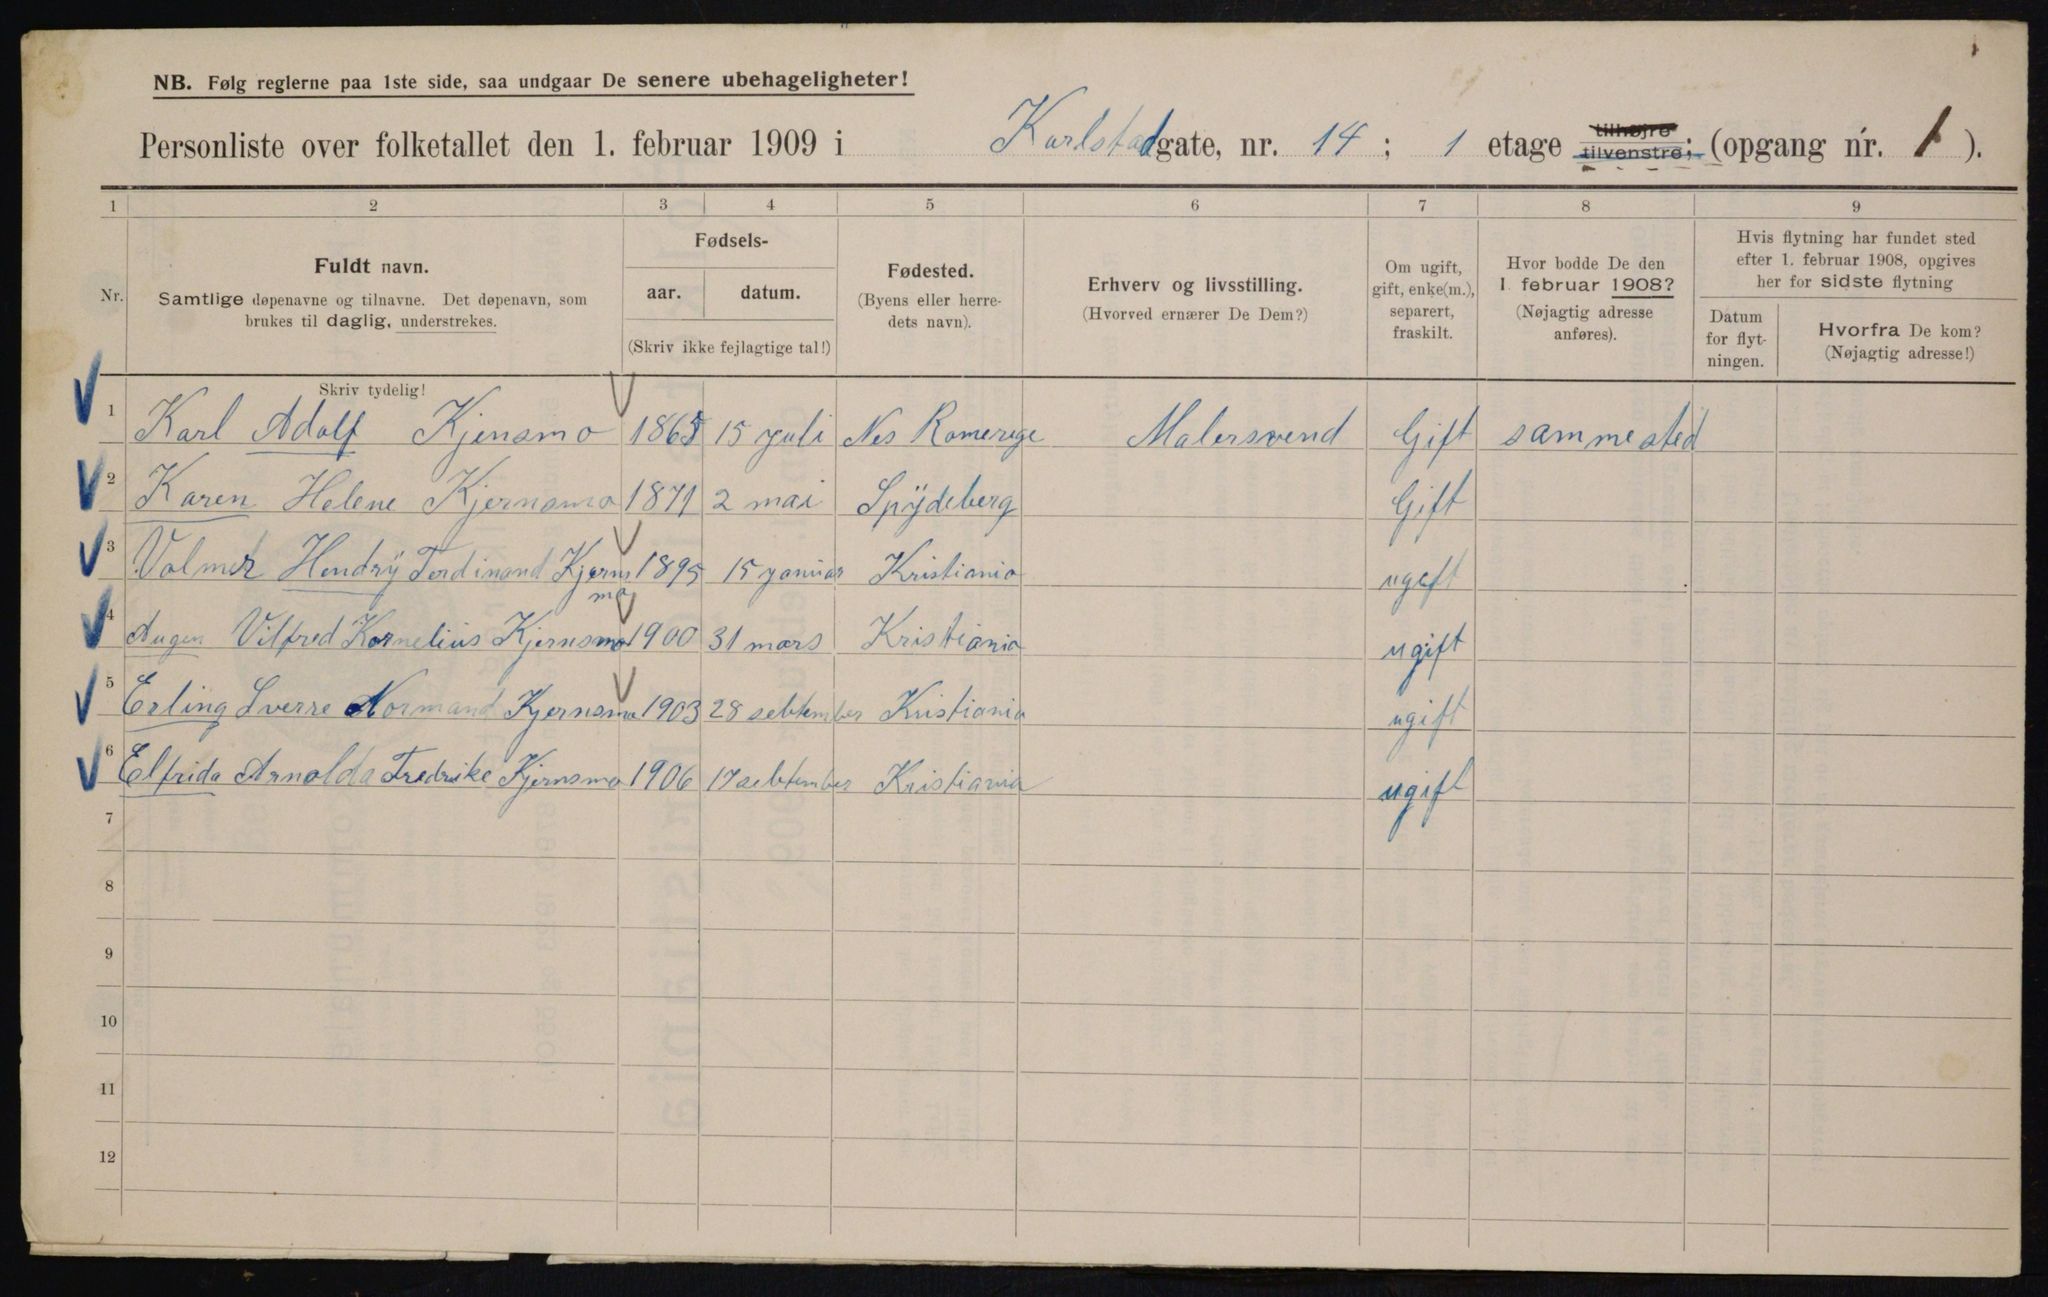 NB. Følg reglerne paa 1ste side, saa undgaar De senere ubehageligheter!
Personliste over folketallet den 1. februar 1909 i Karlstadgate, nr. 14; 1 etage tilhøjre tilvenstre; (opgang nr. 1).
1 2 3 4 5 6 7 8 9
Nr.
Fuldt navn.
Samtlige døpenavne og tilnavne. Det døpenavn, som
brukes til daglig, understrekes.
Fødsels-
aar. datum.
(Skriv ikke fejlagtige tal!)
Fødested.
(Byens eller herre-
dets navn).
Erhverv og livsstilling.
(Hvorved ernærer De Dem?)
Om ugift,
gift, enke(m.),
separert,
fraskilt.
Hvor bodde De den
1. februar 1908?
(Nøjagtig adresse
anføres).
Hvis flytning har fundet sted
efter 1. februar 1908, opgives
her for sidste flytning
Datum
for flyt-
ningen.
Hvorfra De kom?
(Nøjagtig adresse!)
Skriv tydelig!
1 Karl Adolf Kjensmo 1865 15 juli Nes Romerige Malersvend Gift sammested
2 Karen Helene Kjernsmo 1871 2 mai Spÿdeberg Gift
3 Volmer Hendrÿ Ferdinand Kjerns 1895 15 januar Kristiania ugift
mo
4 Augen Vilfred Kornelius Kjernsmo 1900 31 mars Kristiania ugift
5 Erling Sverre Normand Kjernsmo 1903 28 sebtember Kristiania ugift
6 Elfrida Arnolda Fredrike Kjernsmo 1906 17 sebtember Kristiania ugift
7
8
9
10
11
12